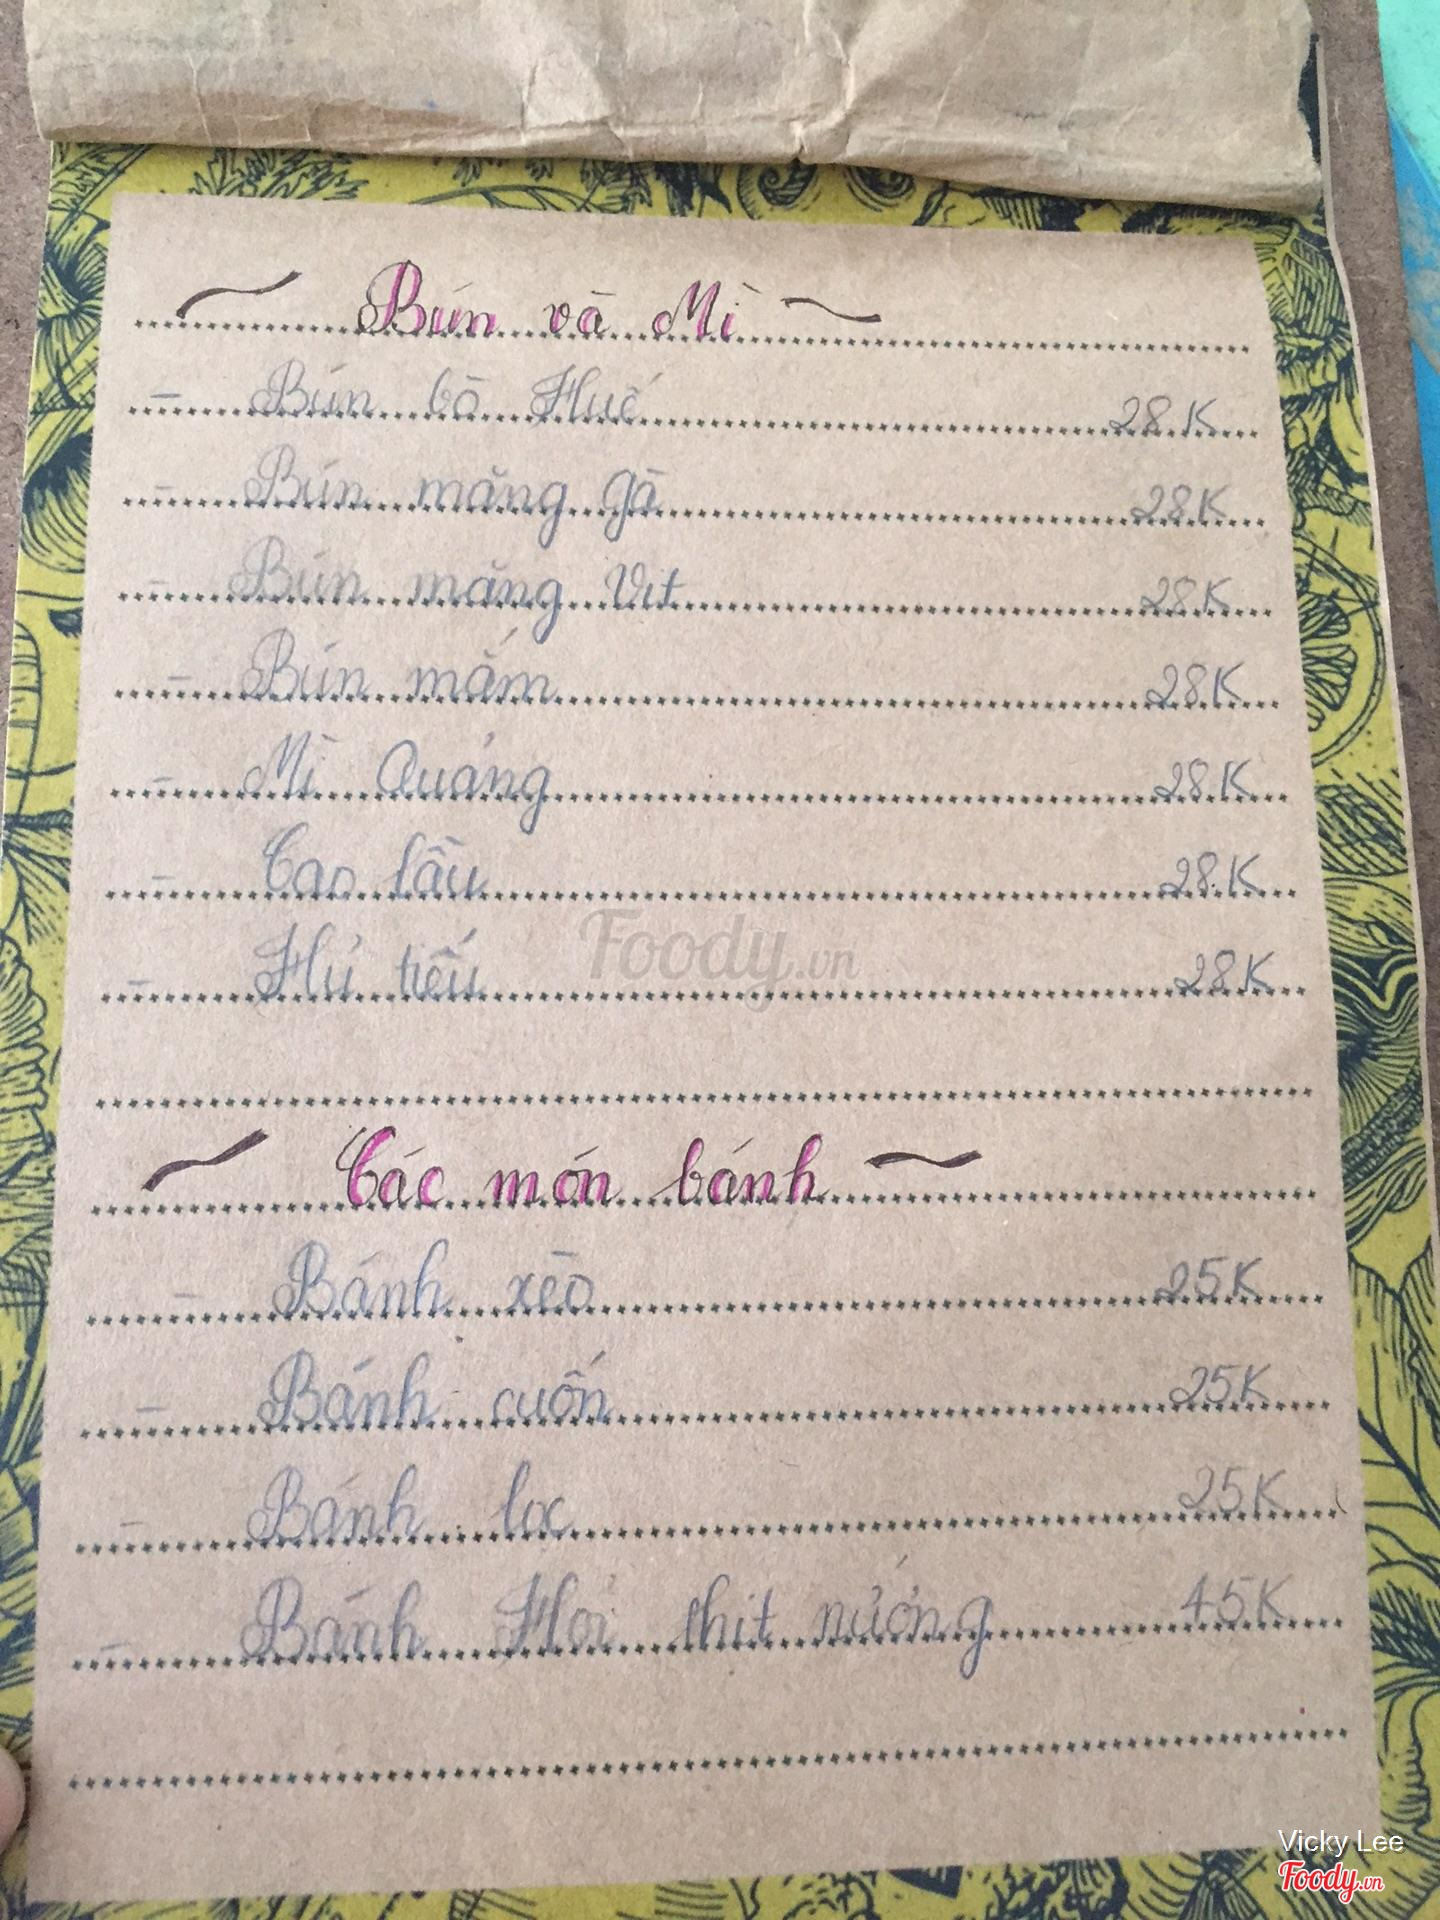 ~ Bún và Mì ~
- Bún bò Huế 28K
- Bún măng gà 28K
- Bún măng Vịt 28K
- Bún mắm 28K
- Mì Quảng 28K
- Cao lầu 28K
- Hủ tiếu 28K
Foody.vn
~ Các món bánh ~
- Bánh xèo 25K
- Bánh cuốn 25K
- Bánh lọc 25K
- Bánh Hỏi thịt nướng 45K
Vicky Lee
Foody.vn